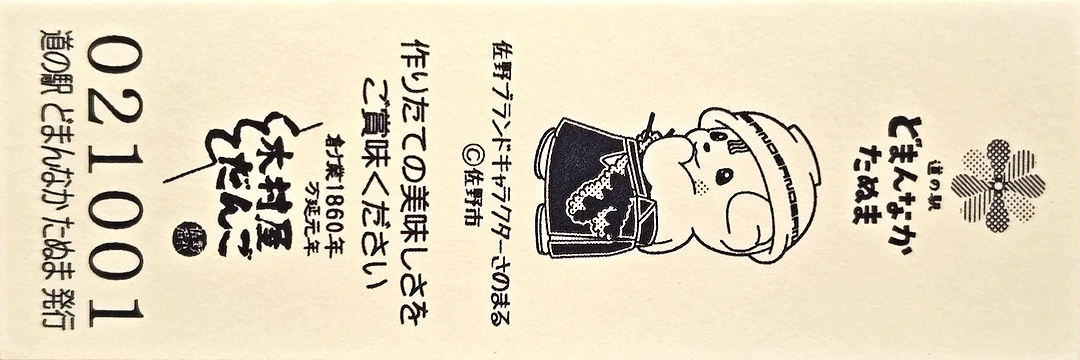 道の駅
どまんなか
たぬま
佐野ブランドキャラクターさのまる
©佐野市
作りたての美味しさを
ご賞味ください
創業1860年
万延元年
木村屋
だんご
021001
道の駅 どまんなか たぬま 発行